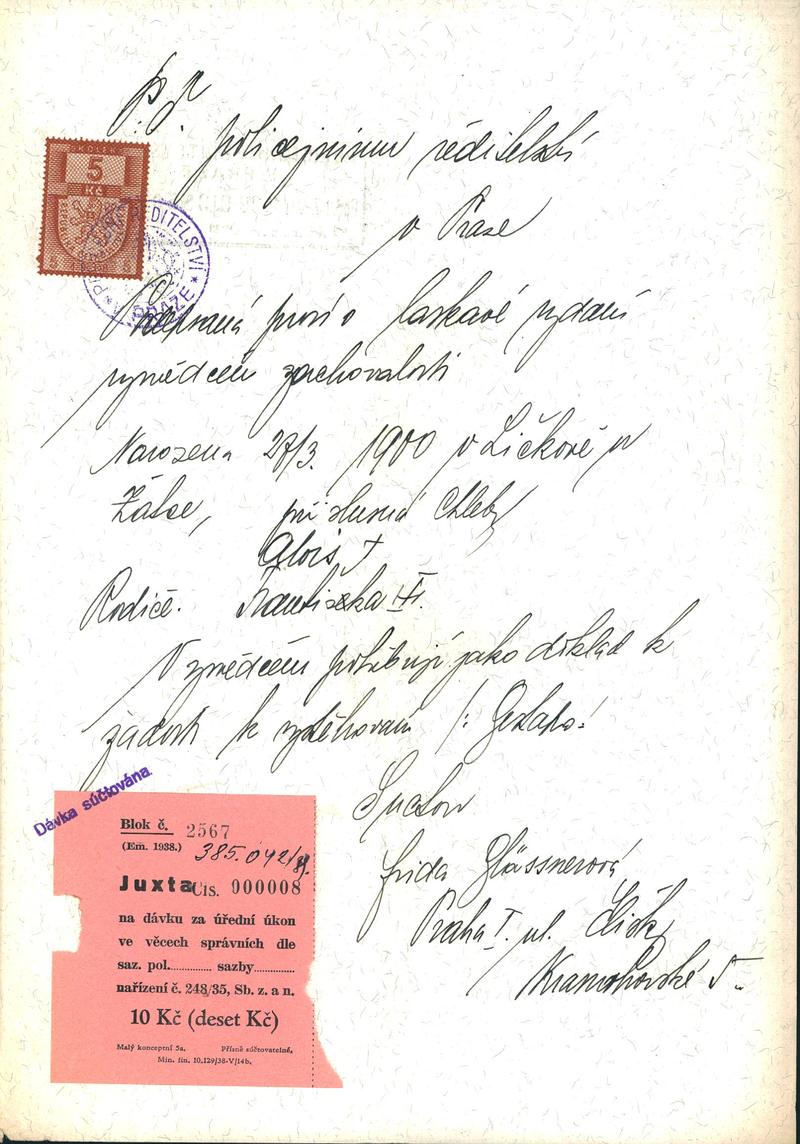 P.T.
policejnímu ředitelství
v Praze
KOLEK
5
Kč
ŘEDITELSTVÍ
PRAZE
Podepsaná prosí o laskavé vydání
vysvědčení zachovalosti
Narozena 27/3. 1900 v Ličkově u
Žatce, příslušná Chleby
Alois †
Rodiče. Františka
Vysvědčení potřebuji jako doklad k
žádosti k vystěhování /: Gestapo:
S úctou
Frida Glässnerová
Praha I. ul. Elišky
Krásnohorské 5
Dávka súčtována.
Blok č. 2567
(Em. 1938.) 385.042/39.
Juxta Čís. 000008
na dávku za úřední úkon
ve věcech správních dle
saz. pol............ sazby............
nařízení č. 248/35, Sb. z. a n.
10 Kč (deset Kč)
Malý konceptní 5a. Přísně súčtovatelné.
Min. fin. 10.129/38-V/14b.